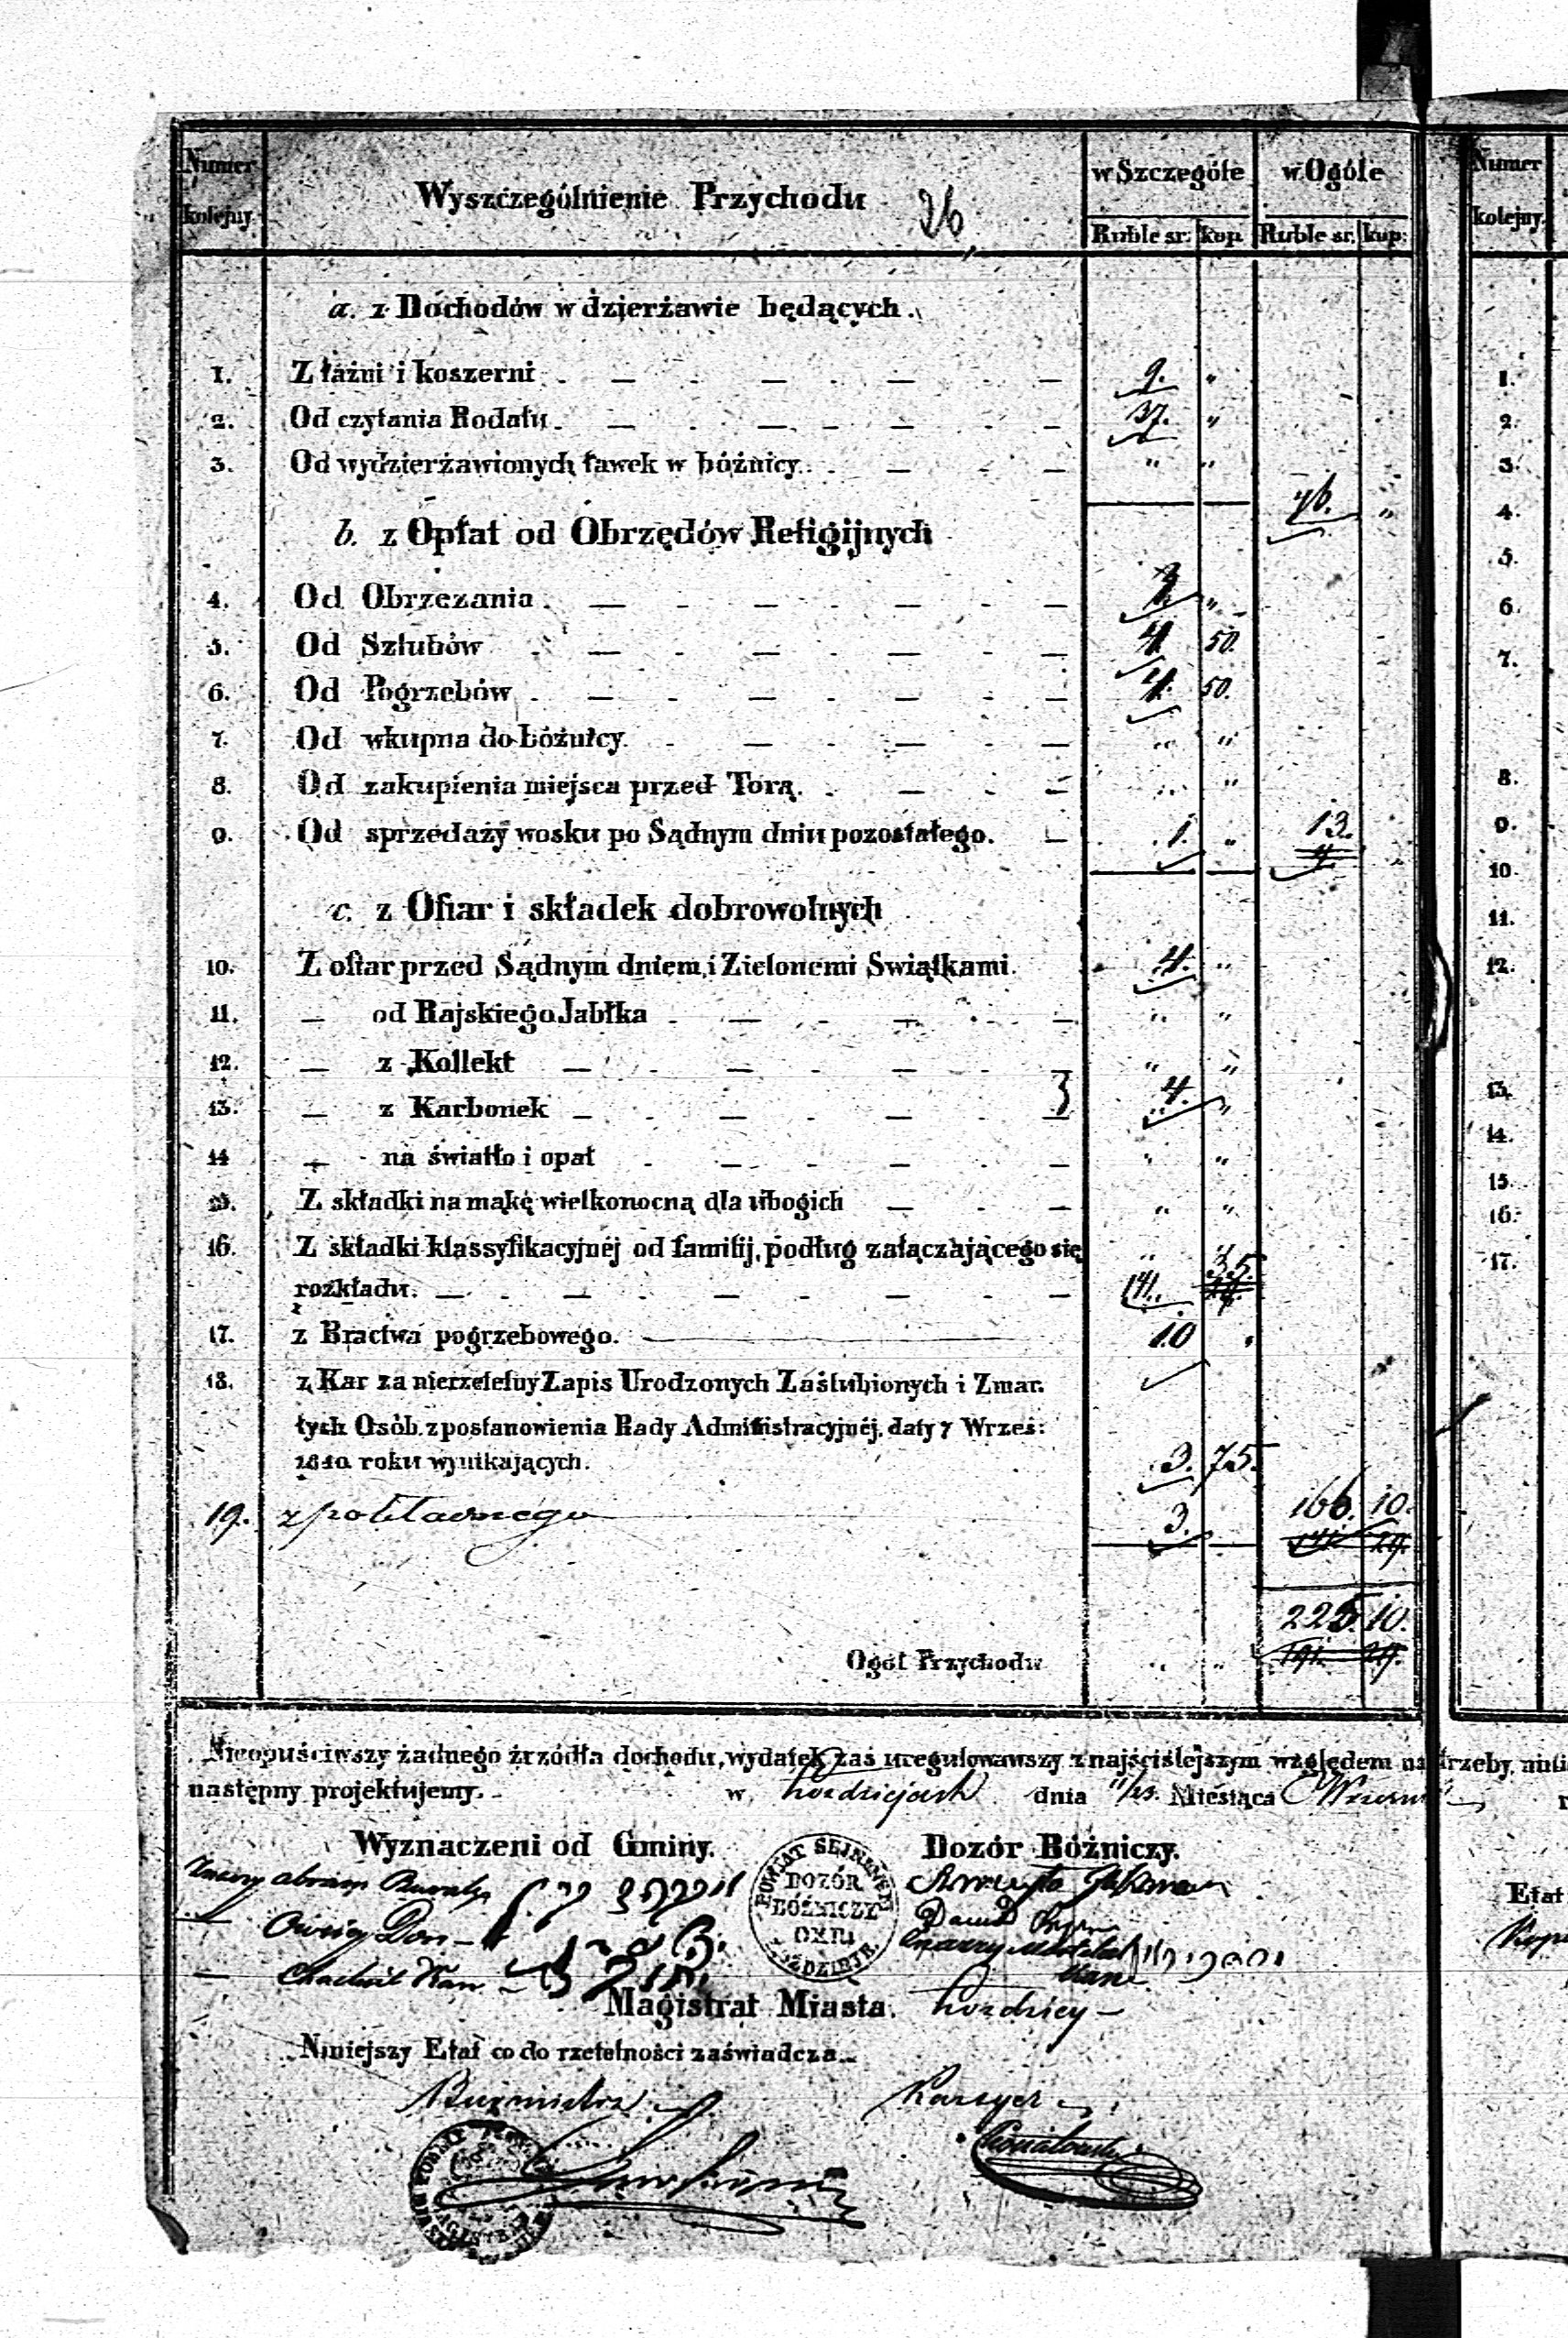 Numer kolejny. Wyszczególnienie Przychodu 26 w Szczególe w Ogóle Numer kolejny.
Ruble sr. kop. Ruble sr. kop.
a. z Dochodów w dzierżawie będących.
1. Z łaźni i koszerni 9. „ 1.
2. Od czytania Rodału. 37. „ 2.
3. Od wydzierżawionych ławek w bóżnicy. „ „ 3.
46. „ 4.
b. z Opłat od Obrzędów Religijnych
5.
4. Od Obrzezania. 3. „ 6.
5. Od Szlubów 4. 50. 7.
6. Od Pogrzebów 4. 50.
7. Od wkupna do bóżnicy. „ „
8. Od zakupienia miejsca przed Torą. „ „ 8.
9. Od sprzedaży wosku po Sądnym dniu pozostałego. 1. „ 13. 9.
10.
c. z Ofiar i składek dobrowolnych 11.
10. Z ofiar przed Sądnym dniem, i Zielonemi Swiątkami. 4. „ 12.
11. — od Rajskiego Jabłka „ „
12. — z Kollekt „ „
13. — z Karbonek 3 4. „ 13.
14 — na światło i opał „ „ 14.
15. Z składki na mąkę wielkonocną dla ubogich „ „ 15.
16.
16. Z składki klassyfikacyjnéj od familij, podług załączającego się „ „ 17.
rozkładu. 141. 35.
17. z Bractwa pogrzebowego. 10 „
18. z Kar za nierzetelny Zapis Urodzonych Zaślubionych i Zmar.
łych Osób, z postanowienia Rady Administracyjnéj, daty 7 Wrześ:
1810 roku wynikających. 3. 75.
19. z pokładnego 3. 166. 10.
141. 29.
225. 10.
Ogół Przychodu „ „ 191. 29.
Nieopuściwszy żadnego źrzódła dochodu, wydatek zaś uregulowawszy z najściślejszym względem na
następny projektujemy. w Łozdziejach dnia 11/23. Miesiąca
Wyznaczeni od Gminy. Dozór Bóżniczy.
POWIAT SEJNEŃSKI
DOZÓR
BÓŻNICZY
OKR:
Etat
Magistrat Miasta. Łozdziey
Niniejszy Etat co do rzetelności zaświadcza.
Burmistrz Kassyer